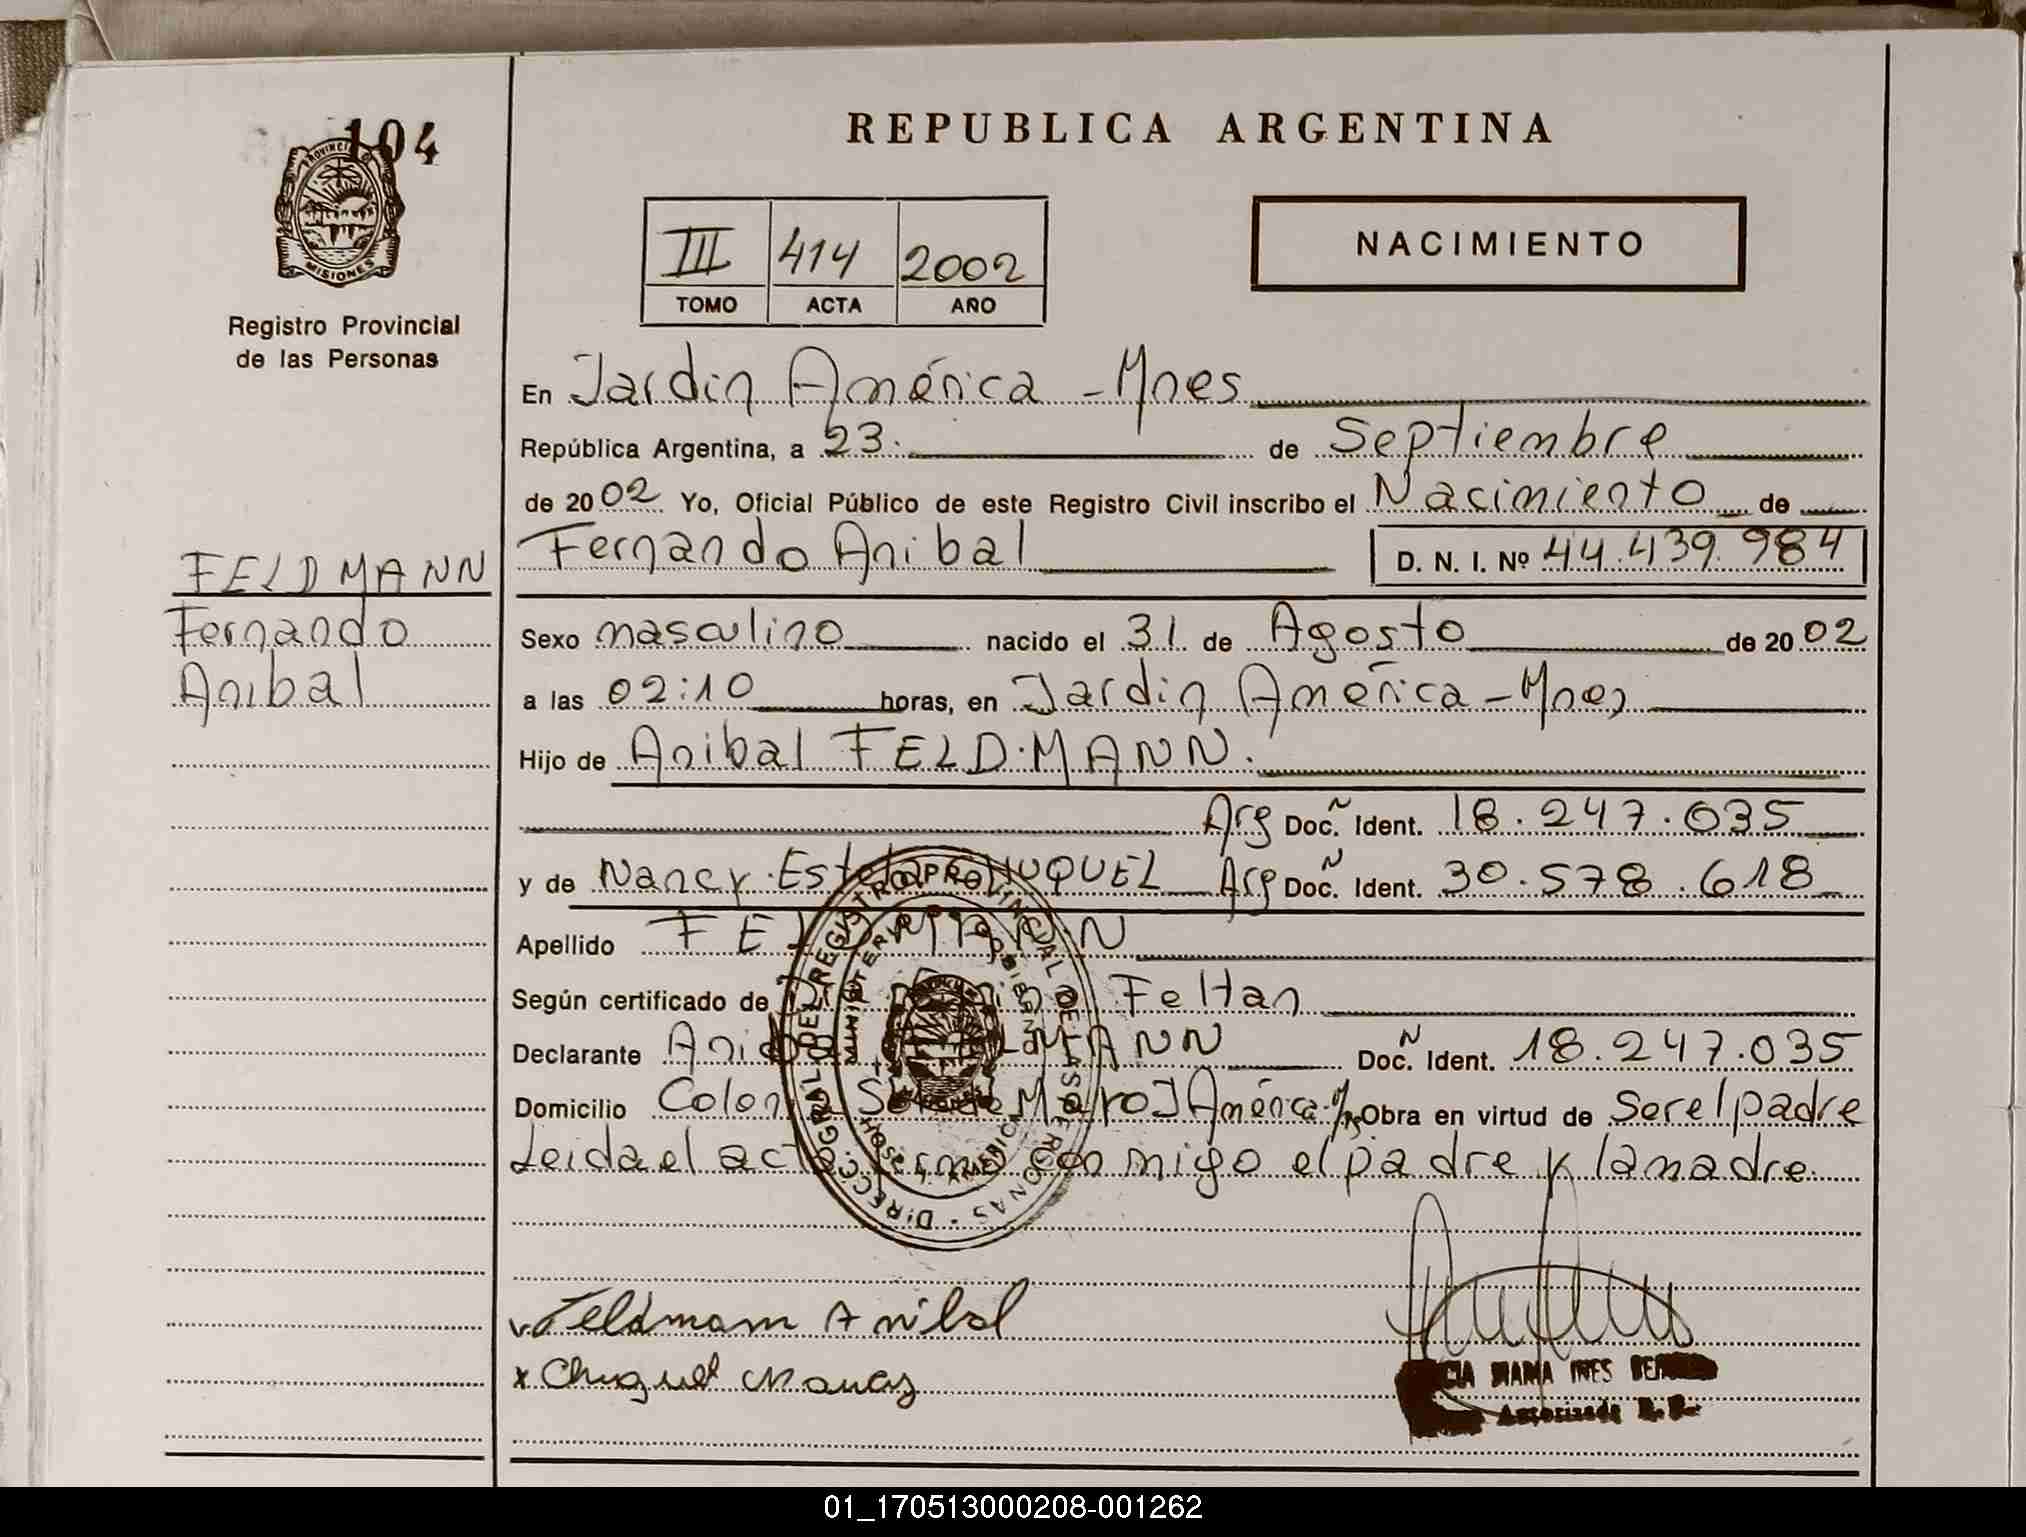 104
PROVINCIA D
MISIONES
Registro Provincial
de las Personas
FELDMANN
Fernando
Anibal
REPUBLICA ARGENTINA
III 414 2002
TOMO ACTA AÑO
NACIMIENTO
En Jardin América - Mnes
República Argentina, a 23. de Septiembre
de 2002 Yo, Oficial Público de este Registro Civil inscribo el Nacimiento de
Fernando Anibal D. N. I. Nº 44.439.984
Sexo masculino nacido el 31 de Agosto de 2002
a las 02:10 horas, en Jardin América - Mnes
Hijo de Anibal FELDMANN.
Arg Doc. Ñ Ident. 18.247.035
y de Nancy Estela CHUQUEL Arg Doc. Ñ Ident. 30.578.618
Apellido FELDMANN
Según certificado de Feltan
Declarante Anibal FELDMANN Doc. Ñ Ident. 18.247.035
Domicilio J América Obra en virtud de ser el padre
Leida el acta firma conmigo el padre y la madre.
DIRECC. GRAL. DEL REGISTRO PROVINCIAL DE LAS PERSONAS
Feldmann Anibal
x Chuquel Nancy
MARIA INES
Autorizada
01_170513000208-001262